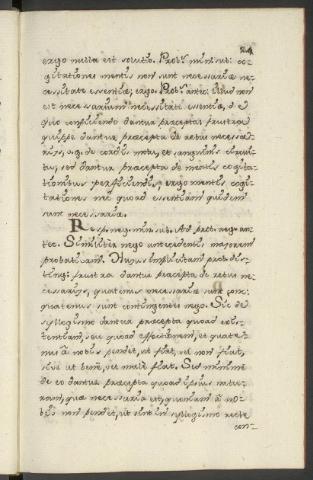 24
ergo nulla est solutio. Prob.r min: sub: co-
gitationes mentis non sunt necessariæ ne-
cessitate essentiæ; ergo. Prob.r ante: illud non
est necessarium necessitate essentiæ, de
quo conficiendo dantur præcepta: frustra
quippe dantur præcepta de rebus necessa-
riis, v.g. de cordis motu, et sanguinis circui-
tu; sed dantur præcepta de mentis cogita-
tionibus perficiendis; ergo mentis cogi-
tationes ne quoad essentiam quidem
sunt necessariæ.
Resp. neg. min. sub. Ad prob. neg. an-
tec. Similiter nego antecedentis majorem
probationis. Hujus amplius prob. dis-
ting: frustra dantur præcepta de rebus ne-
cessariis, quatenus necessariæ sunt conc.
quatenus sunt contingentes nego. Sic de
syllogismo dantur præcepta quoad exis-
tentiam, seu quoad effectionem, et quate-
nus à nobis pendet, ut fiat, vel non fiat,
sive ut bene, vel male fiat. Sed minime
de eo dantur præcepta quoad ipsius natu-
ram, quæ necessaria est, quoniam à no-
bis non pendet, ut sint in syllogismo recte
con-